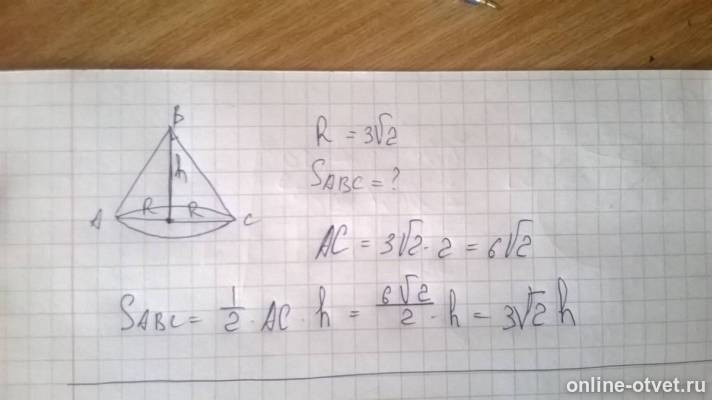 B
h
A R R C
R = 3√2
S_ABC = ?
AC = 3√2 · 2 = 6√2
S_ABC = 1/2 · AC · h = 6√2/2 · h = 3√2 h
online-otvet.ru